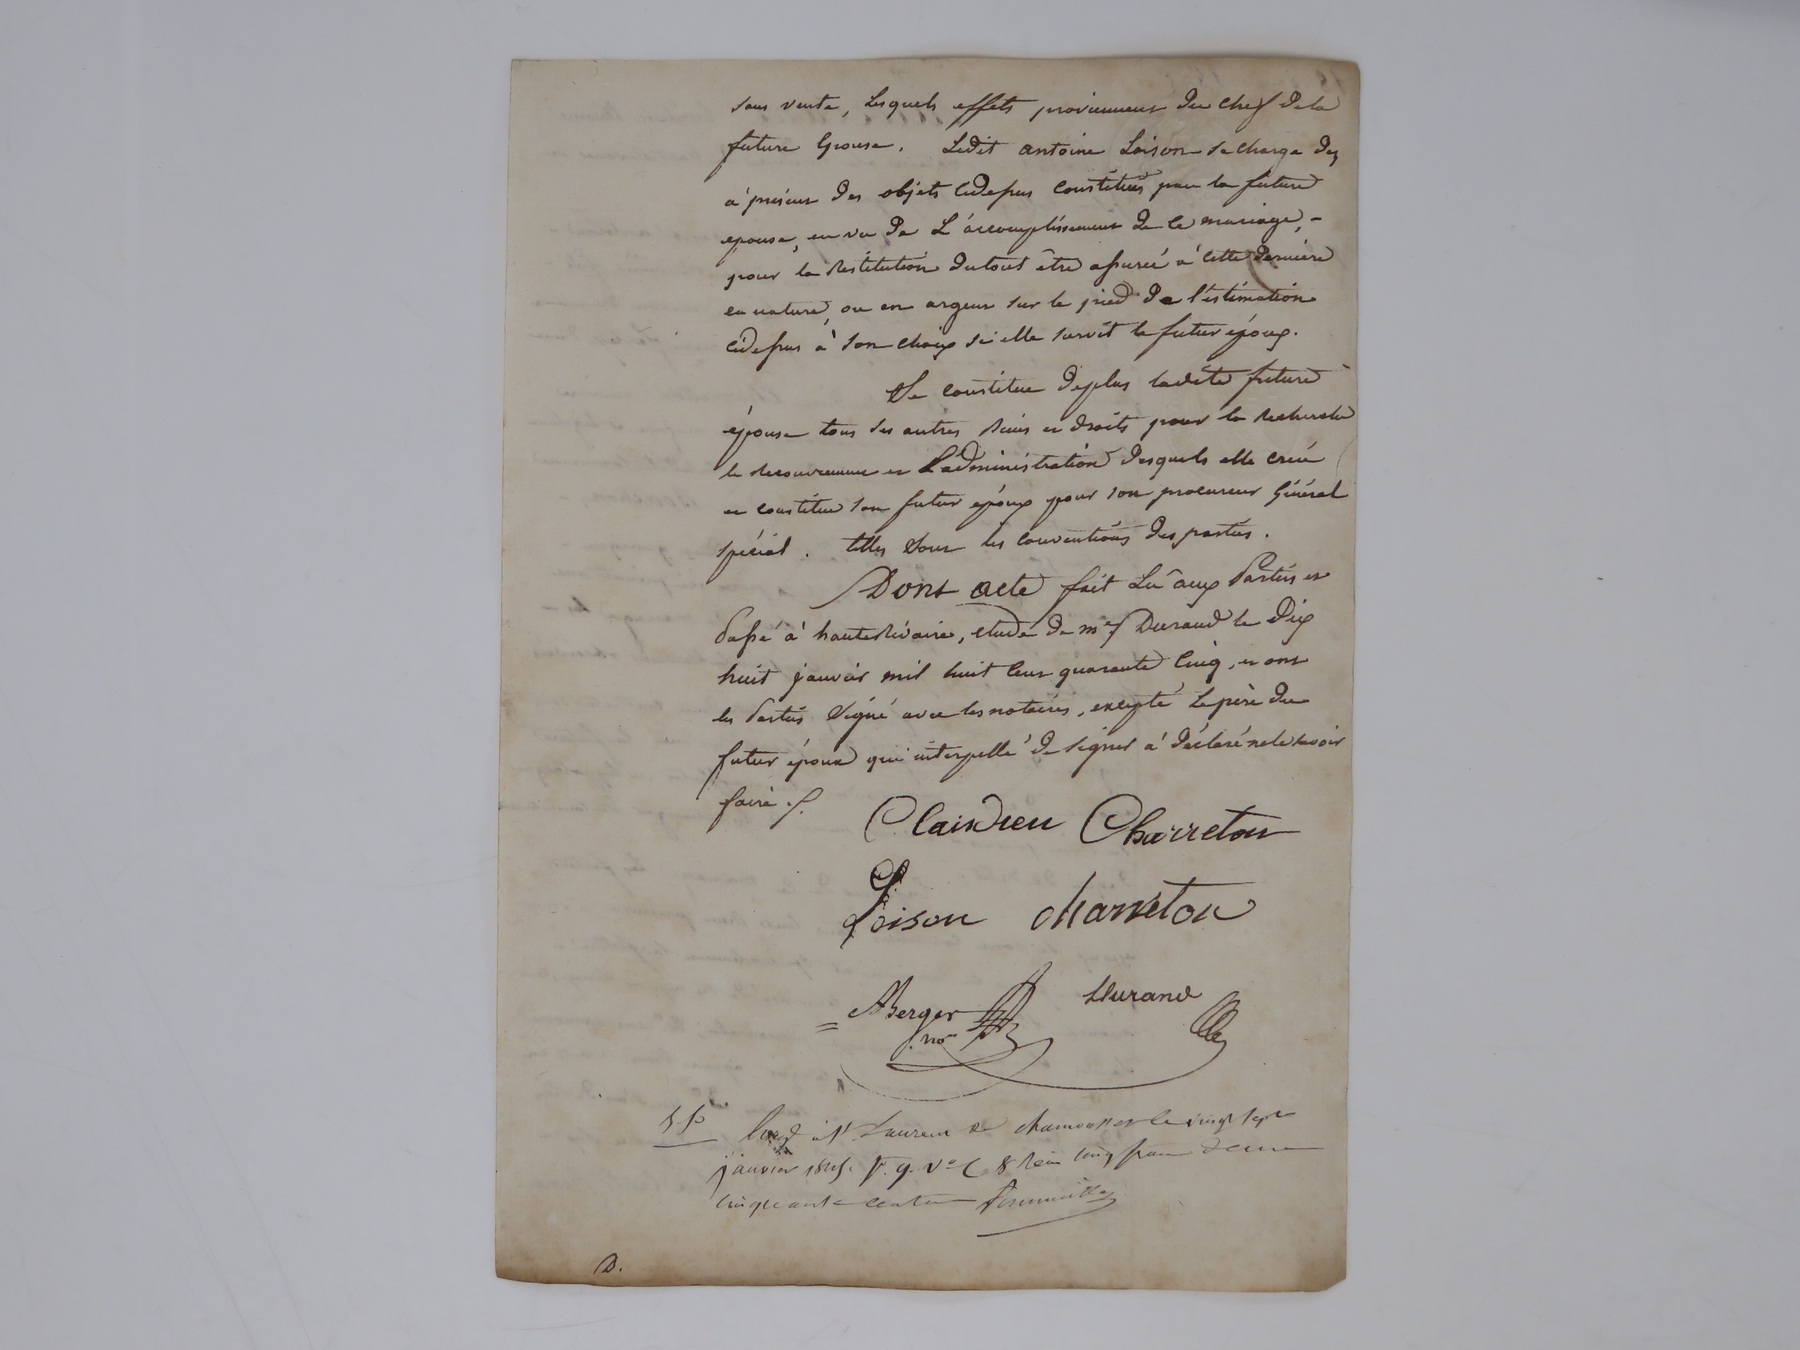 sans vente, Lesquels effets proviennent du chef dela
future Epouse. Ledit antoine Loison se charge des
à présent des objets cidessus constitués par la future
epouse, en vu de L'accomplissement de ce mariage, -
pour la Restitution dutout être assurée à cette dernière
en nature, ou en argent sur le pied de l'estimation
cidessus à son choix si elle survit le futur époux.
Se constitue deplus ladite future
épouse tous ses autres biens et droits pour la Recherche
le recouvrement et L'administration desquels elle crée
et constitue son futur époux pour son procureur Général
spécial. telles sont les conventions des parties.
Dont acte fait Lu aux Parties et
Passé à hauteRivoire, etude de me Durand le Dix
huit janvier mil huit cent quarante cinq, et ont
les Parties signé avec les notaires, excepté Le père du
futur époux qui interpellé de signer à déclaré nele savoir
faire ./.
Claindreu Charreton
Loison charreton
ABerger Durand
no
5.50 à St Laurent de chamousset le vingt sept
janvier 1845. fo. 9. Vo C 8 Reçu cinq francs
cinquante centimes
D.